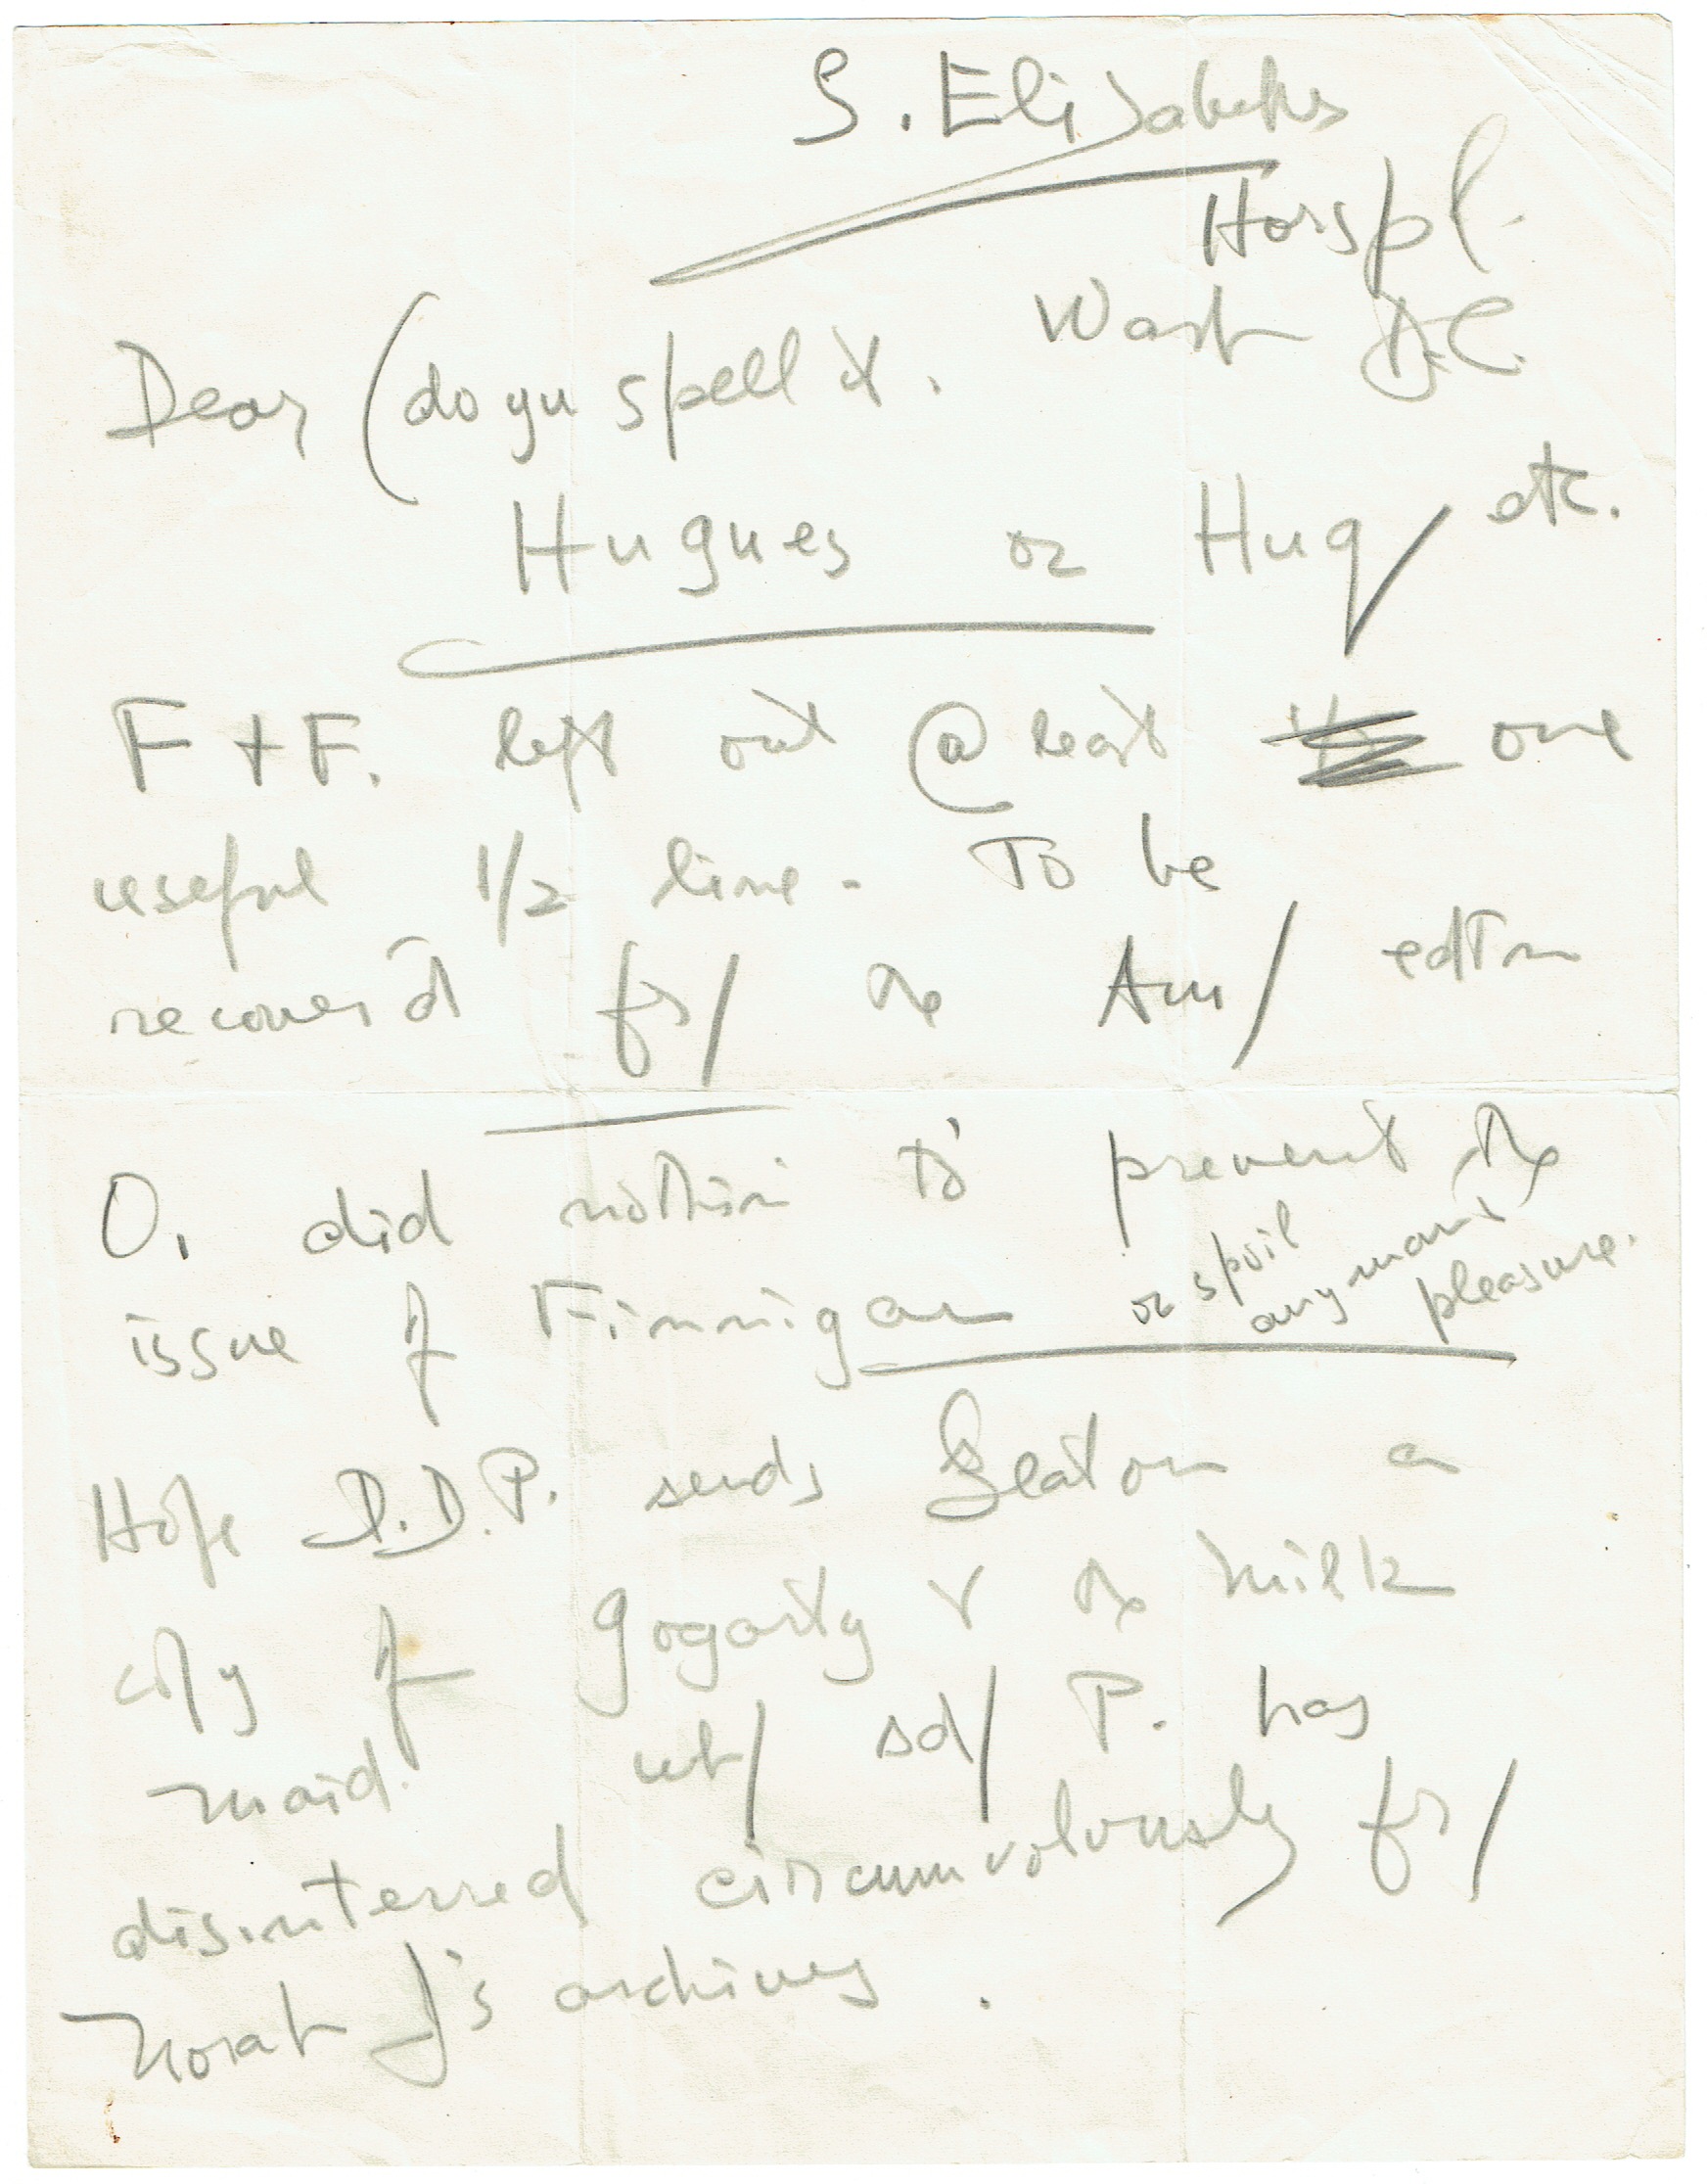 S. Elisabeths
Horspl.
Wash D.C.
Dear (do yu spell it.
Hugues or Hug/ etc.
F + F. left out @ least one
useful 1/2 line. To be
recover'd fr/ the Am/ edtn
O, did nothin to prevent the
issue of Finnigan or spoil
any man's
pleasure.
Hope D.D.P. sends Seaton a
cópy of gogarty & the milk
maid. wh/ sd/ P. has
disinterred circumvolvously fr/
Norah J's archives.